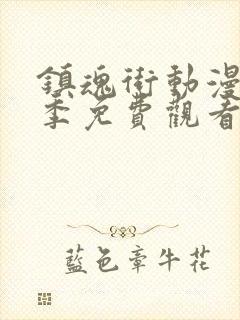 鎮魂街動漫
季免費觀看
藍色牽牛花